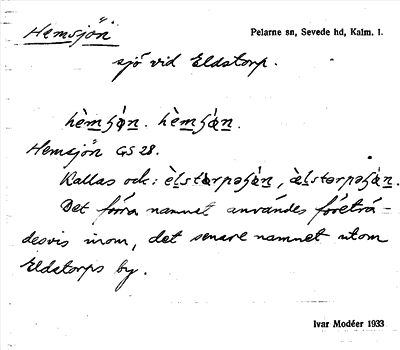 Hemsjön
Pelarne sn, Sevede hd, Kalm. l.
sjö vid Eldstorp.
hèmʃǻn. hèmʃǻn.
Hemsjön GS 28.
Kallas ock: èlstərpəʃǻn, æ̀lstərpəʃǻn.
Det förra namnet användes företrä-
desvis inom, det senare namnet utom
Eldstorps by.
Ivar Modéer 1933